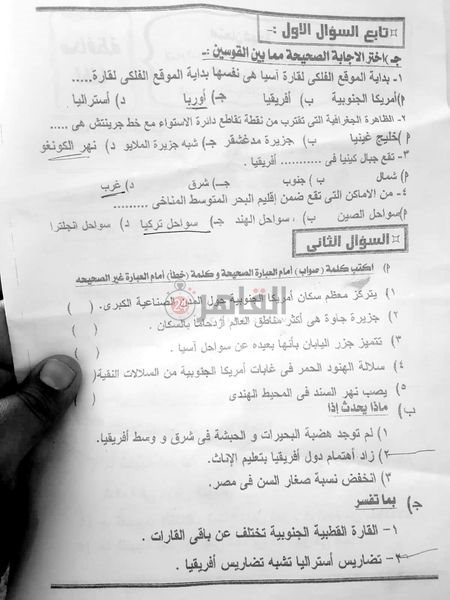 تابع السؤال الأول :-
جـ) اختر الاجابة الصحيحة مما بين القوسين :-
١- بداية الموقع الفلكى لقارة آسيا هى نفسها بداية الموقع الفلكى لقارة.....
أ) أمريكا الجنوبية ب) أفريقيا جـ) أوربا د) أستراليا
٢- الظاهرة الجغرافية التى تقترب من نقطة تقاطع دائرة الاستواء مع خط جرينتش هى .....
أ) خليج غينيا ب) جزيرة مدغشقر جـ) شبه جزيرة الملايو د) نهر الكونغو
٣- تقع جبال كينيا فى ........... أفريقيا .
أ) شمال ب) جنوب جـ) شرق د) غرب
٤- من الاماكن التى تقع ضمن إقليم البحر المتوسط المناخى .........
أ) سواحل الصين ب) سواحل الهند جـ) سواحل تركيا د) سواحل انجلترا
السؤال الثانى
أ) اكتب كلمة (صواب) أمام العبارة الصحيحة و كلمة (خطأ) أمام العبارة غير الصحيحه
القاهرة
١) يتركز معظم سكان أمريكا الجنوبية حول المدن الصناعية الكبرى. ( )
٢) جزيرة جاوة هى أكثر مناطق العالم ازدحاما بالسكان . ( )
٣) تتميز جزر اليابان بأنها بعيده عن سواحل آسيا . ( )
٤) سلالة الهنود الحمر فى غابات أمريكا الجنوبية من السلالات النقية ( )
٥) يصب نهر السند فى المحيط الهندى
ب) ماذا يحدث إذا
١) لم توجد هضبة البحيرات و الحبشة فى شرق و وسط أفريقيا.
٢) زاد أهتمام دول أفريقيا بتعليم الإناث.
٣) انخفض نسبة صغار السن فى مصر.
جـ) بما تفسر
١- القارة القطبية الجنوبية تختلف عن باقى القارات .
٢- تضاريس أستراليا تشبه تضاريس أفريقيا .